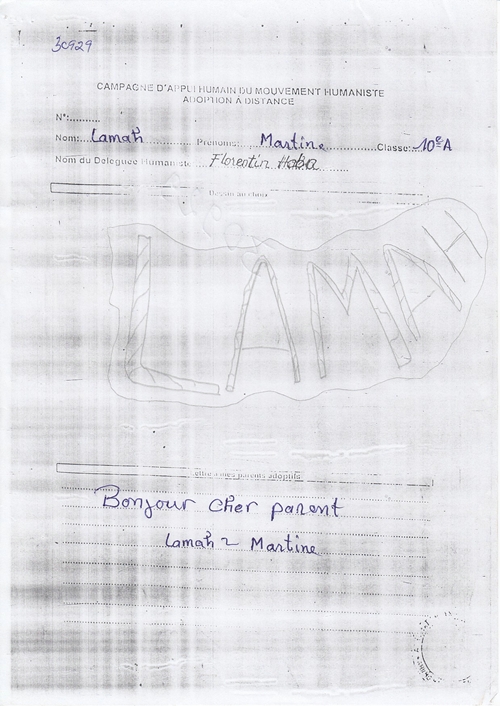 3c929
CAMPAGNE D'APPUI HUMAIN DU MOUVEMENT HUMANISTE
ADOPTION A DISTANCE
N°:..........
Nom:....Lamah.......... Prénoms:....Martine..........Classe:..10eA
Nom du Déléguée Humaniste Florentin Haba........
Dessin au choix
LAMAH
Lettre à mes parents adoptifs
Bonjour cher parent
Lamah 2 Martine